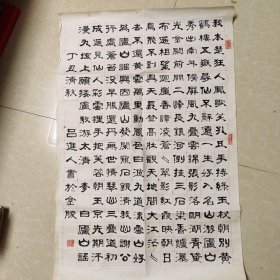 我本楚狂人鳳歌笑孔丘手持綠玉杖朝別黃
鶴樓五嶽尋仙不辭遠一生好入名山遊廬山
秀出南斗傍屏風九疊雲錦張影落明湖青黛
光金闕前開二峰長銀河倒挂三石梁香爐瀑
布遙相望迴崖沓嶂凌蒼蒼翠影紅霞映朝日
鳥飛不到吳天長登高壯觀天地間大江茫茫
去不還黃雲萬里動風色白波九道流雪山好
為廬山謠興因廬山發閑窺石鏡清我心謝公
行處蒼苔沒早服還丹無世情琴心三疊道初
成遙見仙人彩雲裏手把芙蓉朝玉京先期汗
漫九垓上願接盧敖遊太清 李白廬山謠
丁丑清秋 呂進人書於金陵